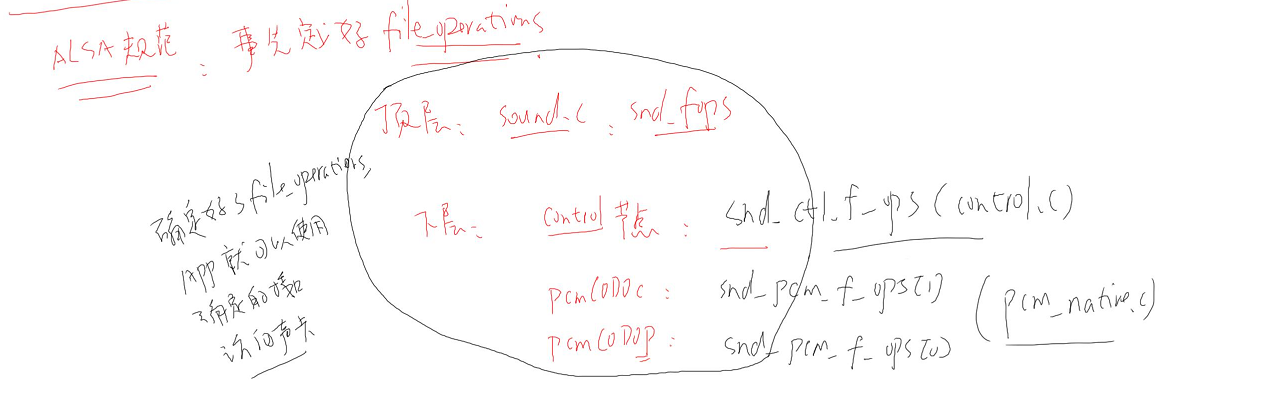 ALSA规范：事先定义好file_operations
顶层：sound.c：snd_fops
下层：control节点：snd_ctl_f_ops(control.c)
pcmC0D0c：snd_pcm_f_ops[1]
pcmC0D0p：snd_pcm_f_ops[0]
(pcm_native.c)
确定好了file_operations,
APP就可以使用
确定的接口
访问声卡